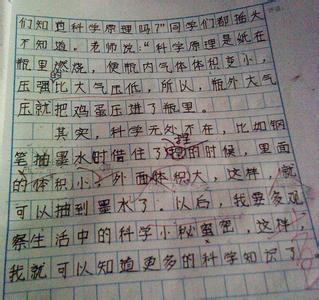 们知道科学原理吗?"同学们都摇头
不知道。老师说:"科学原理是纸在
瓶里燃烧,使瓶内气体体积变小,
压强比大气压低,所以,瓶外大气
压就把鸡蛋压进了瓶里。
其实,科学无处不在,比如钢
笔抽墨水时借住了的时候,里面
的体积小,外面体积大,这样,就
可以抽到墨水了。以后,我要多观
察生活中的科学小秘密,这样,
我就可以知道更多的科学知识了。